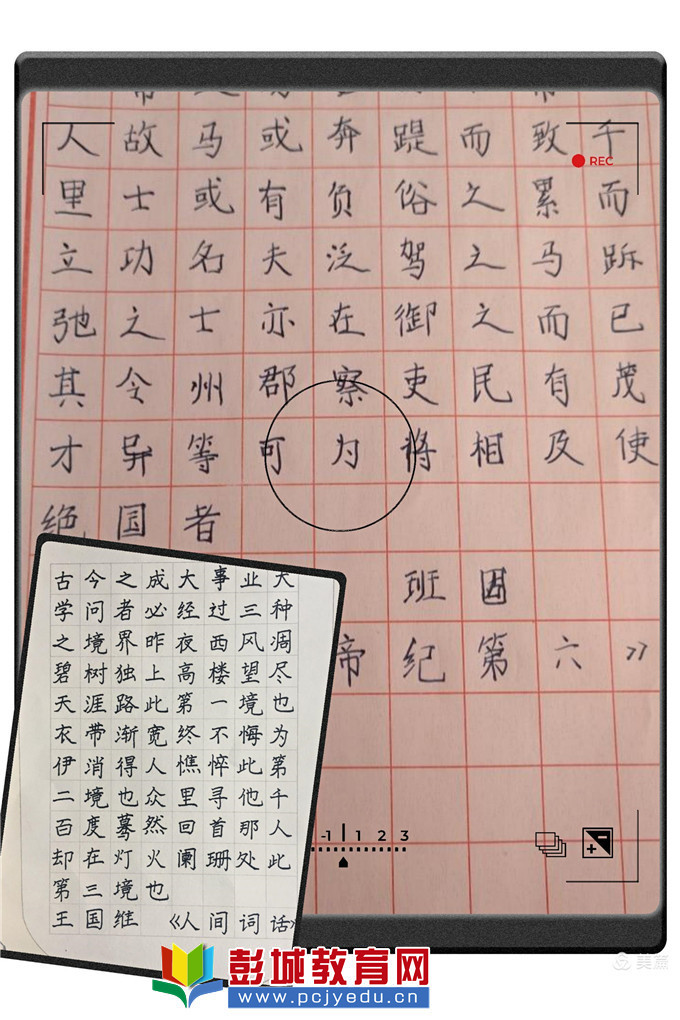 人故马或奔踶而致千
REC
里士或有负俗之累而
立功名夫泛驾之马跅
弛之士亦在御之而已
其令州郡察吏民有茂
才异等可为将相及使
绝国者
班固
帝纪第六》
古今之成大事业大
学问者必经过三种
之境界昨夜西风凋
碧树独上高楼望尽
天涯路此第一境也
衣带渐宽终不悔为
伊消得人憔悴此第
二境也众里寻他千
百度蓦然回首那人
却在灯火阑珊处此
第三境也
王国维 《人间词话》
-1 1 2 3
美篇
彭城教育网
www.pcjyedu.cn